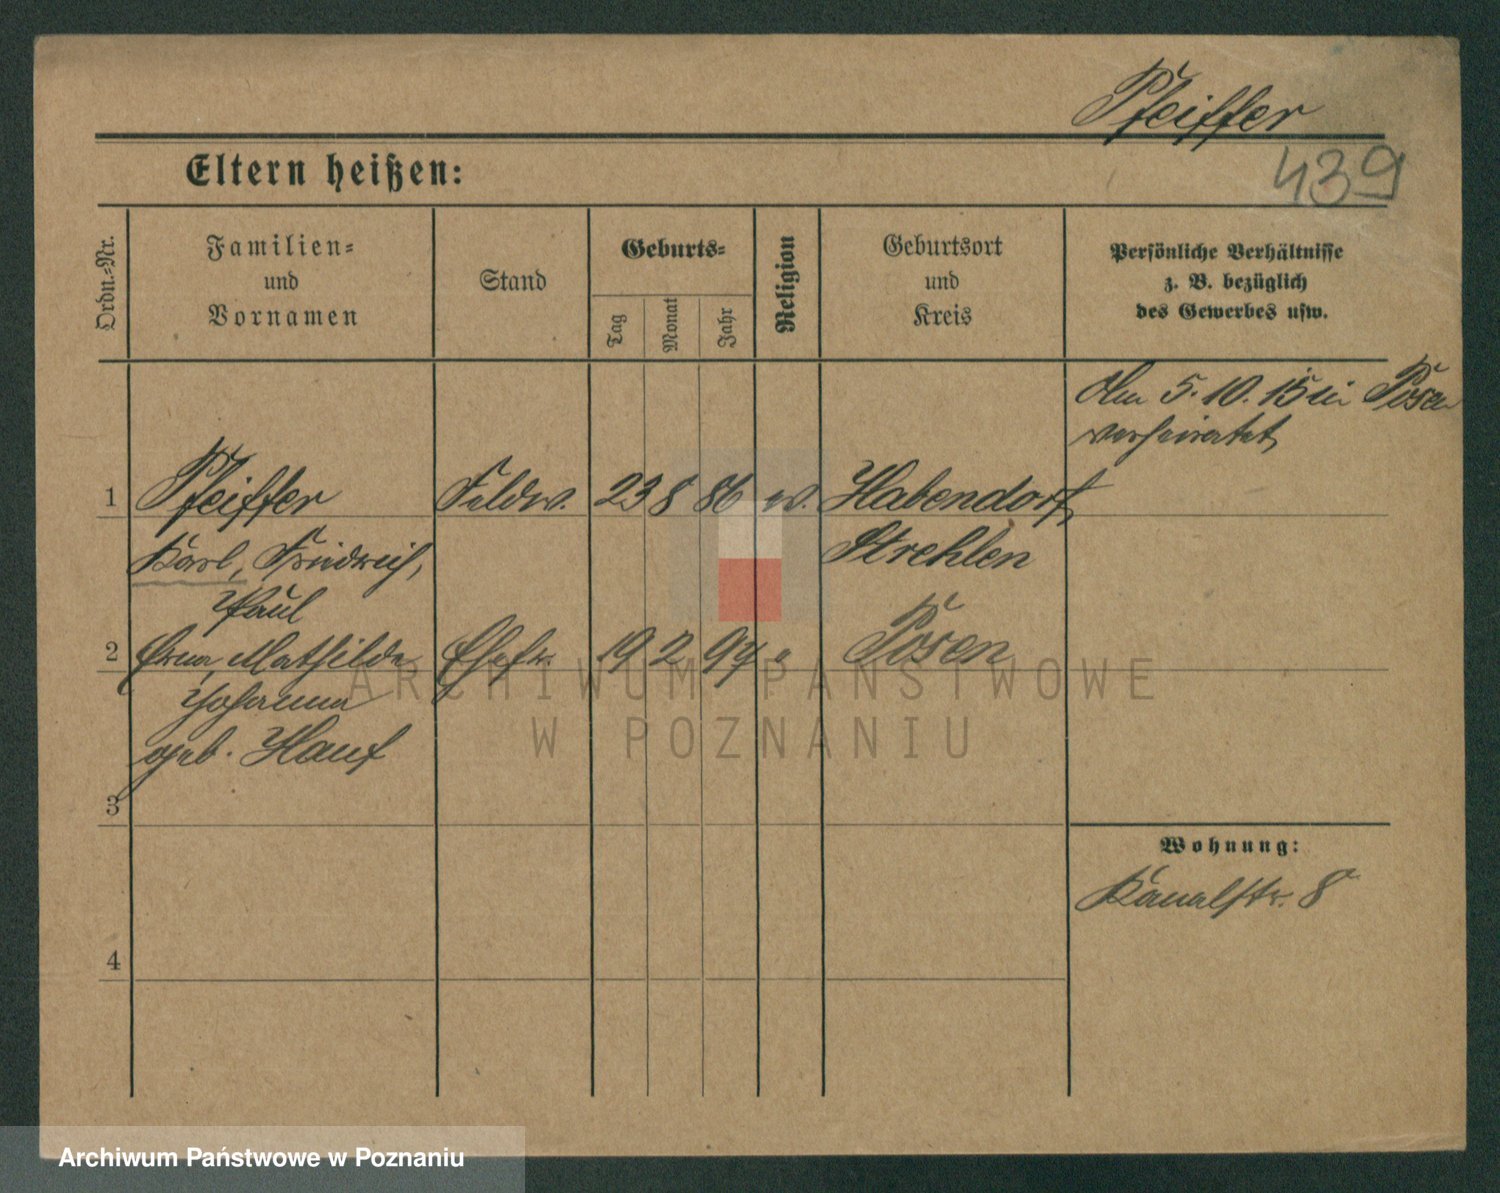 Pfeiffer
439
Eltern heißen:
Ordn.-Nr.
Familien-
und
Vornamen
Stand
Geburts-
Tag
Monat
Jahr
Religion
Geburtsort
und
Kreis
Persönliche Verhältnisse
z. B. bezüglich
des Gewerbes usw.
Am 5. 10. 15 in Posen
verheiratet
1 Pfeiffer Feldw. 23 8 86 ev. Habendorf
Karl, Friedrich, Strehlen
Paul
2 Erna, Mathilde Ehefr. 19 2 94 " Posen
Johanna
geb. Hauf
3
Wohnung:
Kanalstr. 8
4
ARCHIWUM PAŃSTWOWE
W POZNANIU
Archiwum Państwowe w Poznaniu